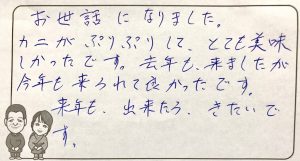 お世話になりました。
カニがぷりぷりして、とても美味
しかったです。去年も、来ましたが
今年も来られて良かったです。
来年も、出来たら、きたいで
す。